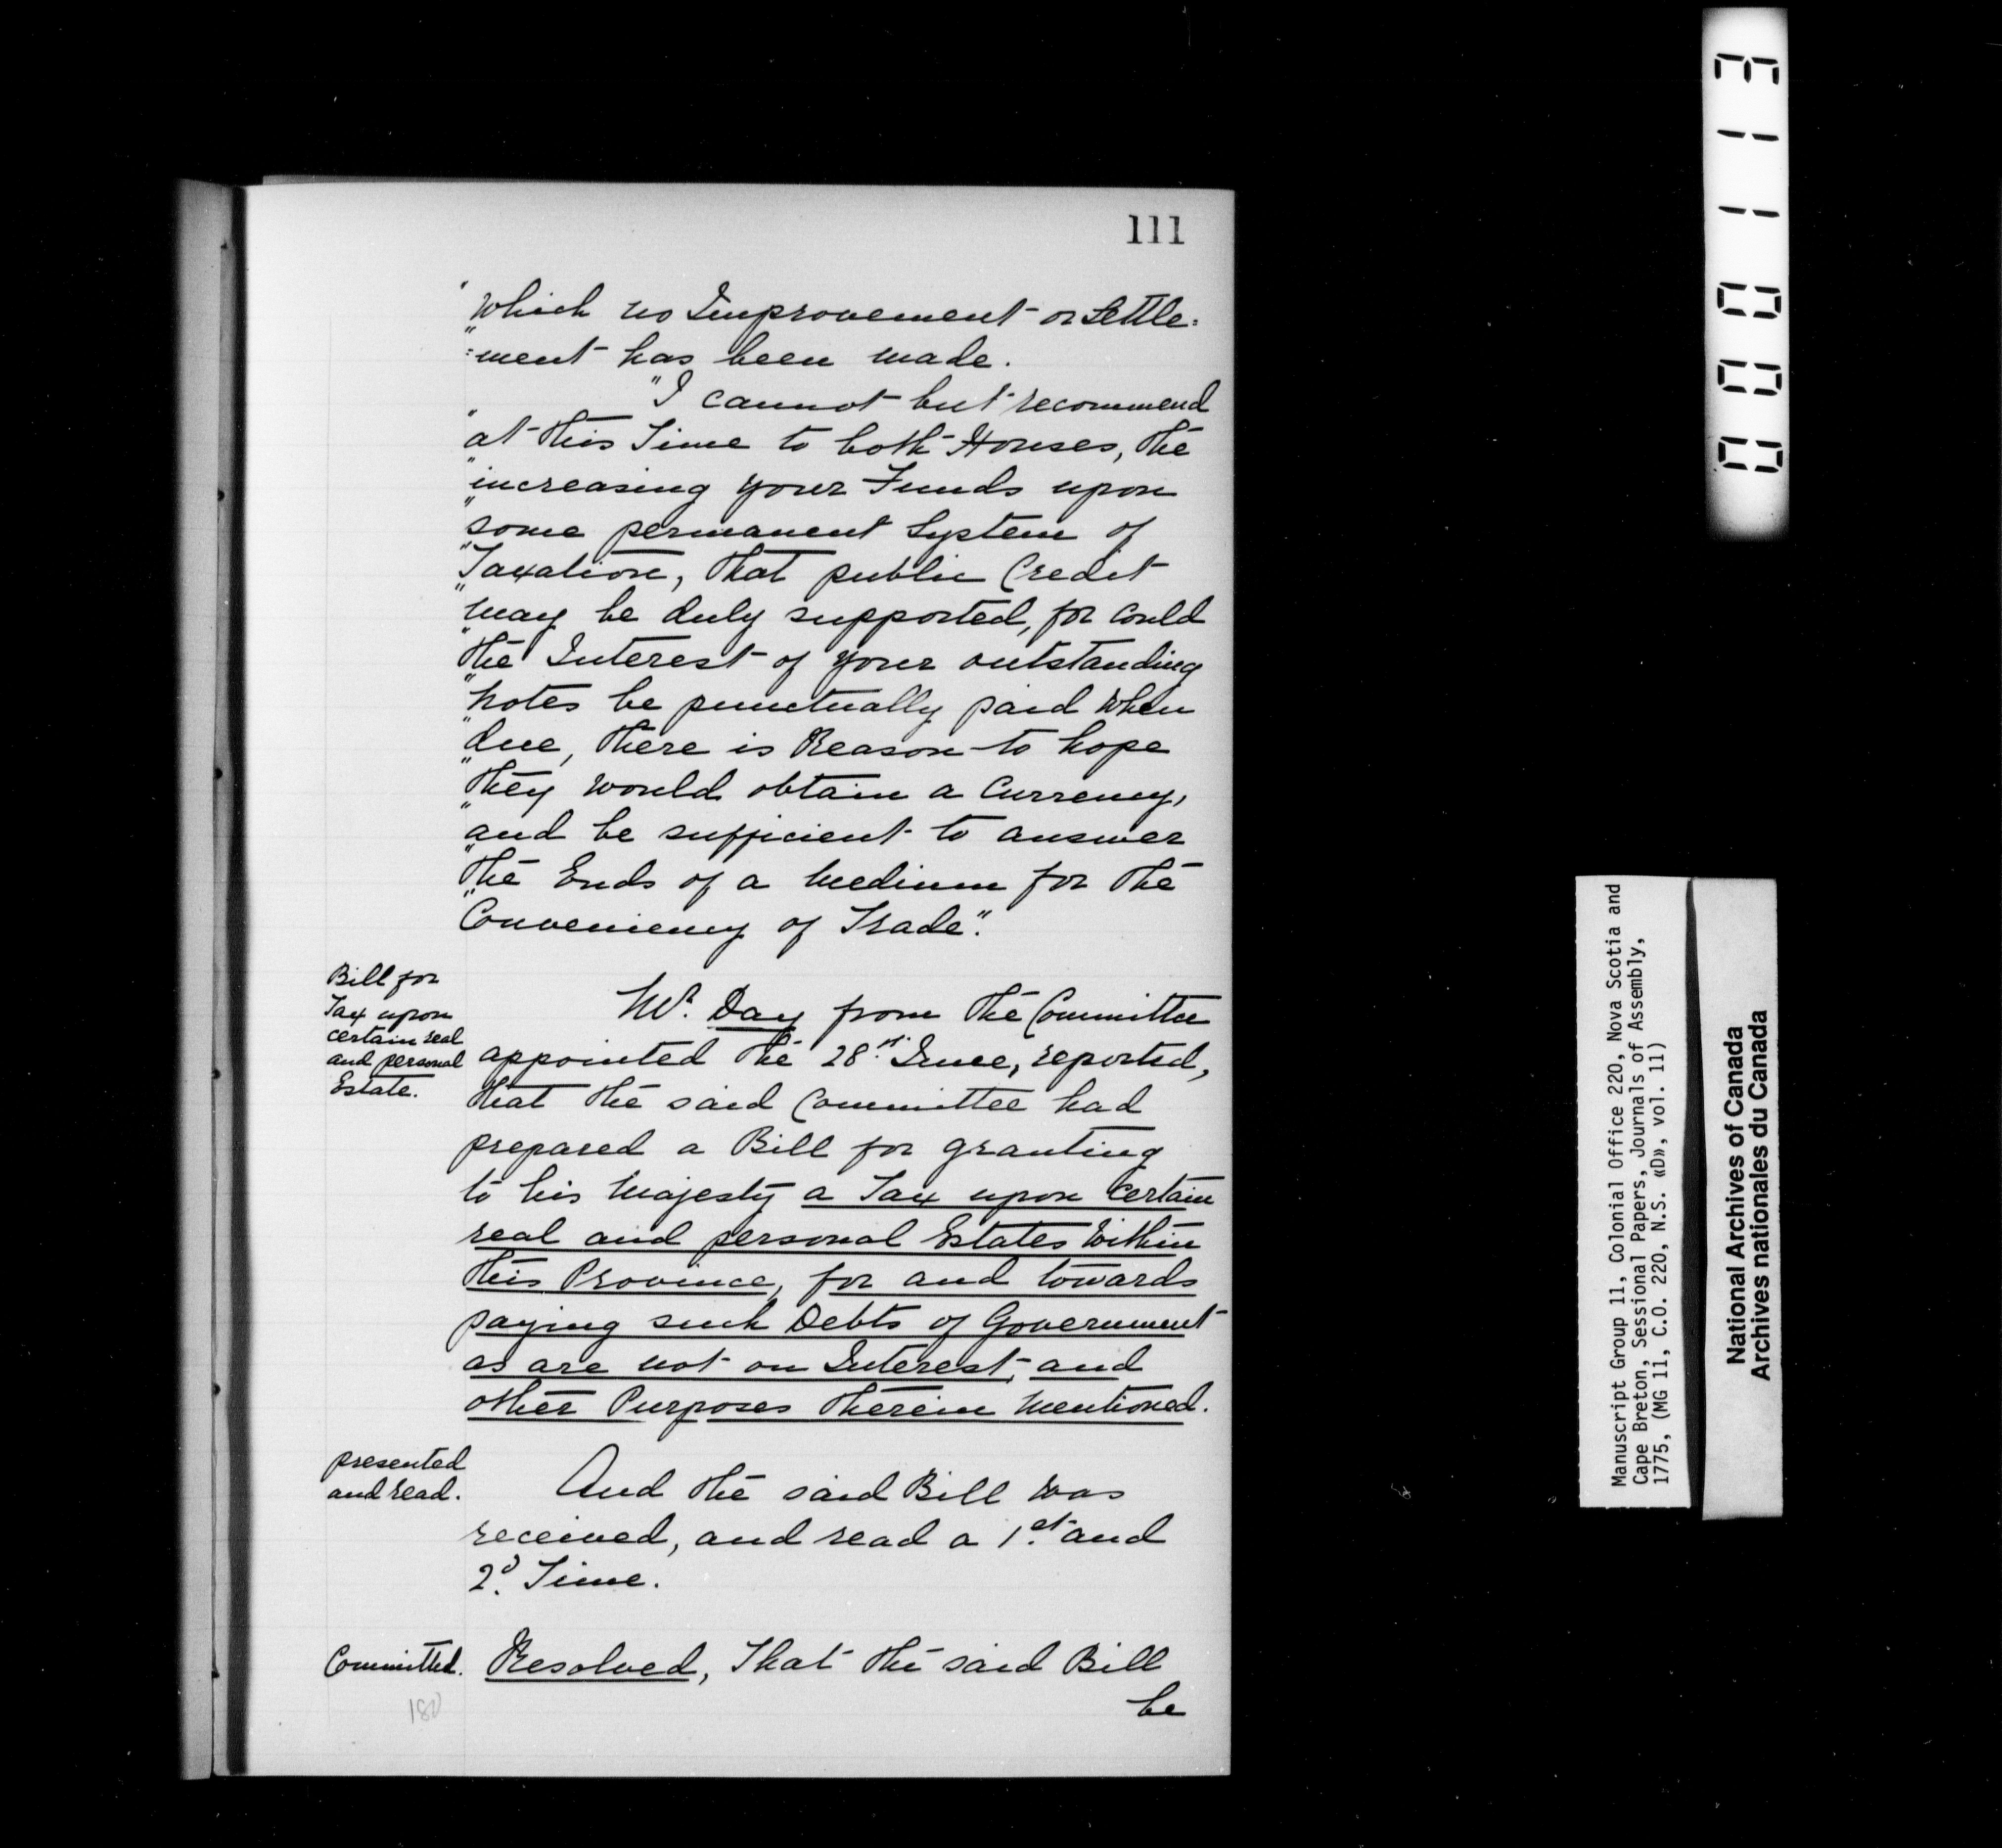 111
"which no Improvement or Settle=
"=ment has been made.
"I cannot but recommend
"at this Time to both Houses, the
"increasing your Funds upon
"some permanent System of
"Taxation, that public Credit
"may be duly supported, for could
"the Interest of your outstanding
"Notes be punctually paid when
"due, there is Reason to hope
"they would obtain a Currency,
"and be sufficient to answer
"the Ends of a Medium for the
"Conveniency of Trade".
Bill for
Tax upon
certain real
and personal
Estate.
Mr. Day from the Committee
appointed the 28st. June, reported,
that the said Committee had
prepared a Bill for granting
to his Majesty a Tax upon certain
real and personal Estates Within
this Province, for and towards
paying such Debts of Government
as are not on Interest, and
other Purposes therein Mentioned.
presented
and read.
And the said Bill was
received, and read a 1st. and
2d. Time.
Committed.
Resolved, That the said Bill
be
180
000113
Manuscript Group 11, Colonial Office 220, Nova Scotia and
Cape Breton, Sessional Papers, Journals of Assembly,
1775, (MG 11, C.O. 220, N.S. «D», vol. 11)
National Archives of Canada
Archives nationales du Canada